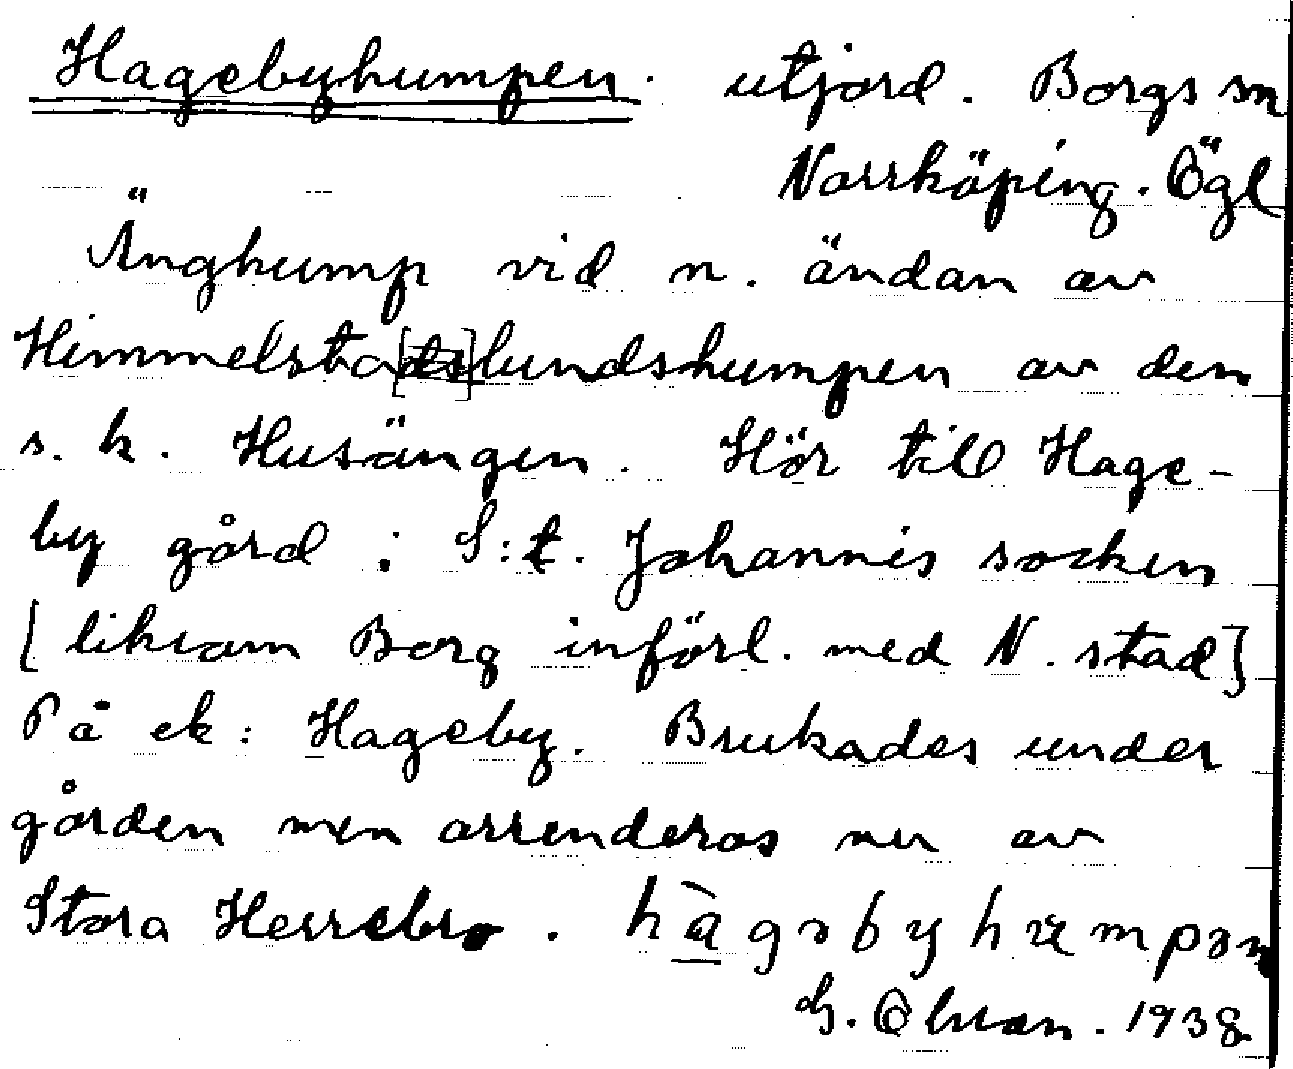 Hagebyhumpen. utjord. Borgs sn
Norrköping. Ögl
Änghump vid n. ändan av
Himmelsta[ds]lundshumpen av den
s. k. Husängen. Hör till Hage-
by gård i S:t. Johannis socken
[liksom Borg införl. med N. stad]
På ek: Hageby. Brukades under
gården men arrenderas nu av
Stora Herrebro. hàgəbyhumpən
G. Olsson. 1938